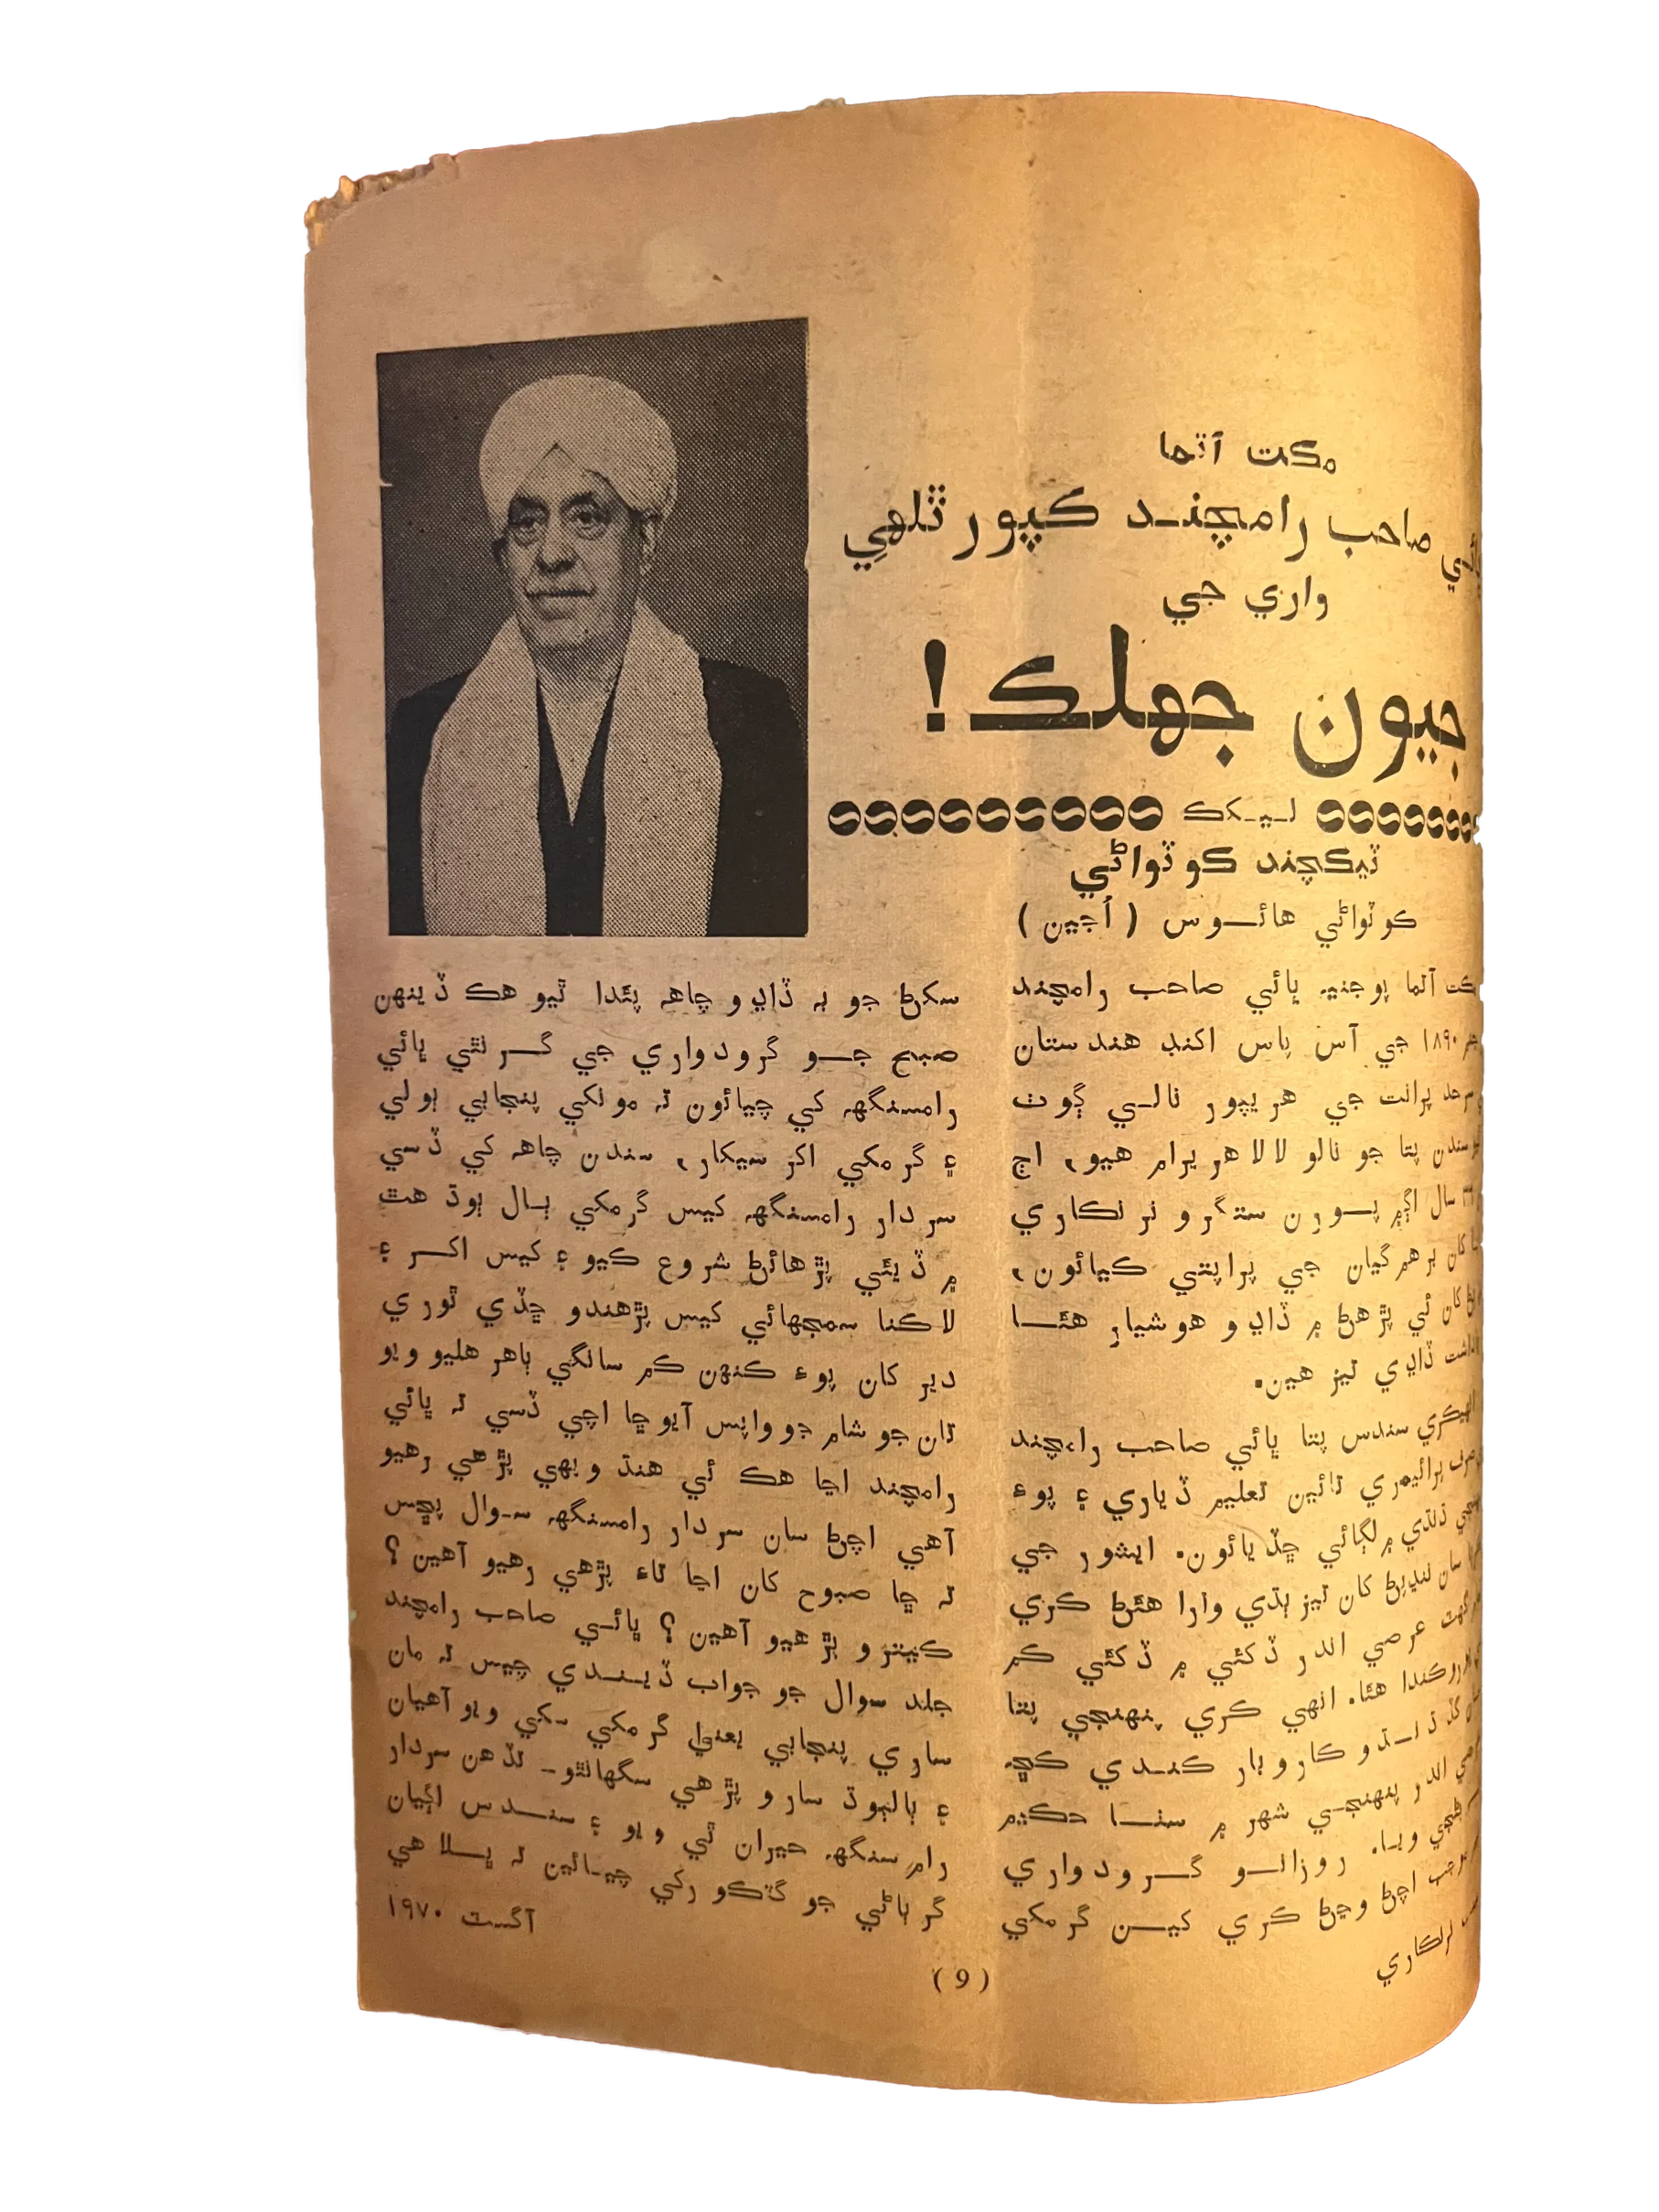 مڪت آتما
صاحب رامچند ڪپور ٿلهي
واري جي
جيون جهلڪ!
ليکڪ
ٽيڪچند ڪوٽواڻي
ڪوٽواڻي هائوس (اُجين)
آتما پوجنيه ڀائي صاحب رامچند
١٨٩٠ جي آس پاس اکنڊ هندستان
سرحد پرانت جي هريپور نالي ڳوٺ
سندن پتا جو نالو لالا هريرام هيو، اڄ
سال اڳ۾ پورن ستگرو نرنڪاري
کان برهم گيان جي پراپتي ڪيائون،
کان ئي پڙهڻ ۾ ڏاڍو هوشيار هئا
ڏاڍي تيز هين.
سندس پتا ڀائي صاحب رامچند
پرائيمري تائين تعليم ڏياري ۽ پوءِ
۾ لڳائي ڇڏيائون. ايشور جي
سان ننڍپڻ کان تيز ٻڌي وارا هئڻ ڪري
عرصي اندر ڏکئي ۾ ڏکئي ڪم
هئا. انهي ڪري پنهنجي پتا
گڏ ڌنڌو ڪاروبار ڪندي ڪڇ
اندر پنهنجي شهر ۾ سٺا حڪيم
ويا. روزانو گرودواري
اچڻ وڃڻ ڪري کيسن گرمکي
نرنڪاري
سکڻ جو به ڏاڍو چاهه پئدا ٿيو هڪ ڏينهن
صبح جو گرودواري جي گرنٿي ڀائي
رامسنگهه کي چيائون ته مونکي پنجابي ٻولي
۽ گرمکي اکر سيکار، سندن چاهه کي ڏسي
سردار رامسنگهه کيس گرمکي ٻال ٻوڌ هٿ
۾ ڏيئي پڙهائڻ شروع ڪيو ۽ کيس اکر ۽
لاڪنا سمجهائي کيس پڙهندو ڇڏي ٿوري
دير کان پوءِ ڪنهن ڪم سانگي ٻاهر هليو ويو
تان جو شام جو واپس آيو ڇا اچي ڏسي ته ڀائي
رامچند اڃا هڪ ئي هنڌ ويهي پڙهي رهيو
آهي اچڻ سان سردار رامسنگهه سوال پڇيس
ته ڇا صبوح کان اڃا تاءِ پڙهي رهيو آهين؟
ڪيترو پڙهيو آهين؟ ڀائي صاحب رامچند
جلد سوال جو جواب ڏيندي چيس ته مان
ساري پنجابي يعني گرمکي سکي ويو آهيان
۽ ٻالٻوڌ سارو پڙهي سگهانٿو۔ تڏهن سردار
رام سنگهه حيران ٿي ويو ۽ سندس اڳيان
گرٻاڻي جو گٽڪو رکي چيائين ته ڀلا هي
آگسٽ ١٩٧٠
(9)